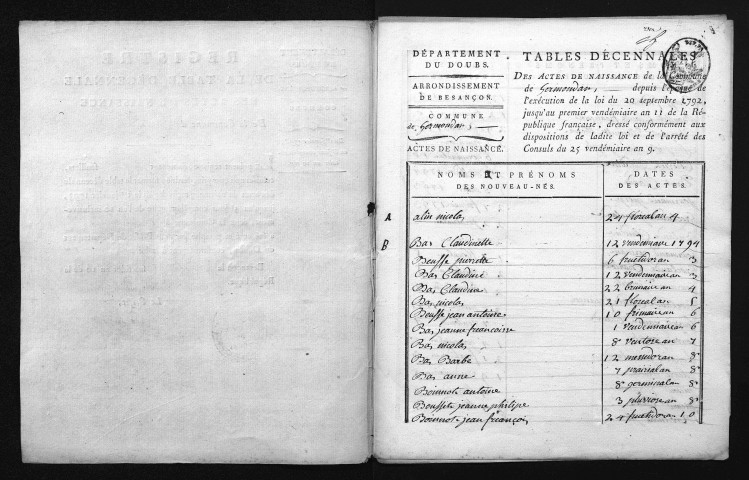 DÉPARTEMENT
DU DOUBS.
ARRONDISSEMENT
DE BESANÇON.
COMMUNE
de Germondans
ACTES DE NAISSANCE.
TABLES DÉCENNALES
DES ACTES DE NAISSANCE de la Commune
de Germondans, depuis l'époque de
l'exécution de la loi du 20 septembre 1792,
jusqu'au premier vendémiaire an 11 de la Ré-
publique française, dressé conformément aux
dispositions de ladite loi et de l'arrêté des
Consuls du 25 vendémiaire an 9.
NOMS ET PRÉNOMS
DES NOUVEAU-NÉS.
DATES
DES ACTES.
A alin nicolas 24 floreal an 4
B Bas Claudinette 12 vendemiaire 1794
Beuffe pierrette 6 fructidor an 3
Bas Claudine 12 vendemiaire an 3
Bas Claudine 22 brumaire an 4
Bas nicolas 21 floreal an 5
Beuffe jean antoine 10 frimaire an 6
Bas jeanne francoise 1 vendemiaire an 6
Bas nicolas 8 ventose an 7
Bas Barbe 12 messidor an 8
Bas anne 7 prairial an 8
Boinnot antoine 8 germinal an 8
jeanne philipe 3 pluviose an 8
Boinnot jean françois 24 fructidor an 10